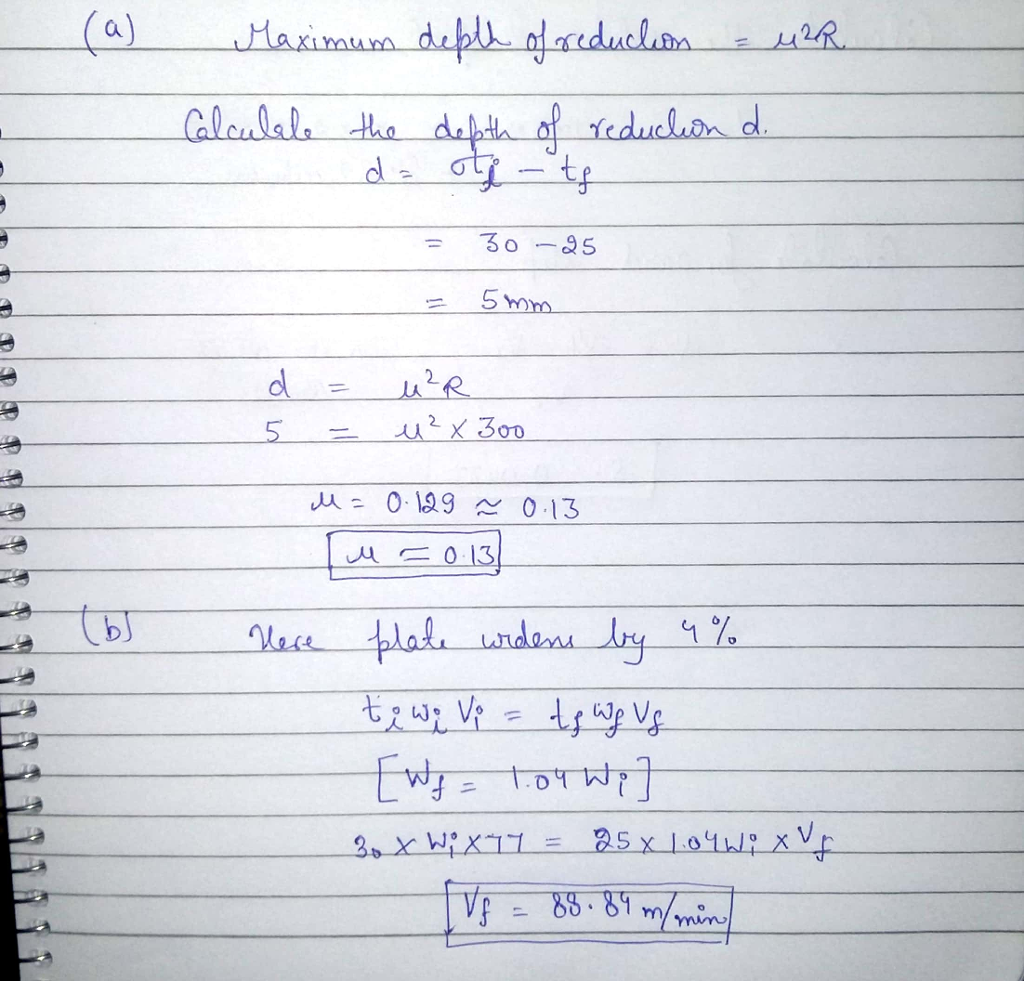 (a) Maximum depth of reduction = μ²R
Calculate the depth of reduction d.
d = ti - tf
= 30 - 25
= 5 mm
d = μ²R
5 = μ² x 300
μ = 0.129 ≈ 0.13
μ = 0.13
(b) Here plate widens by 4%
ti wi Vi = tf wf Vf
[Wf = 1.04 Wi]
30 x Wi x 77 = 25 x 1.04 Wi x Vf
Vf = 88.84 m/min